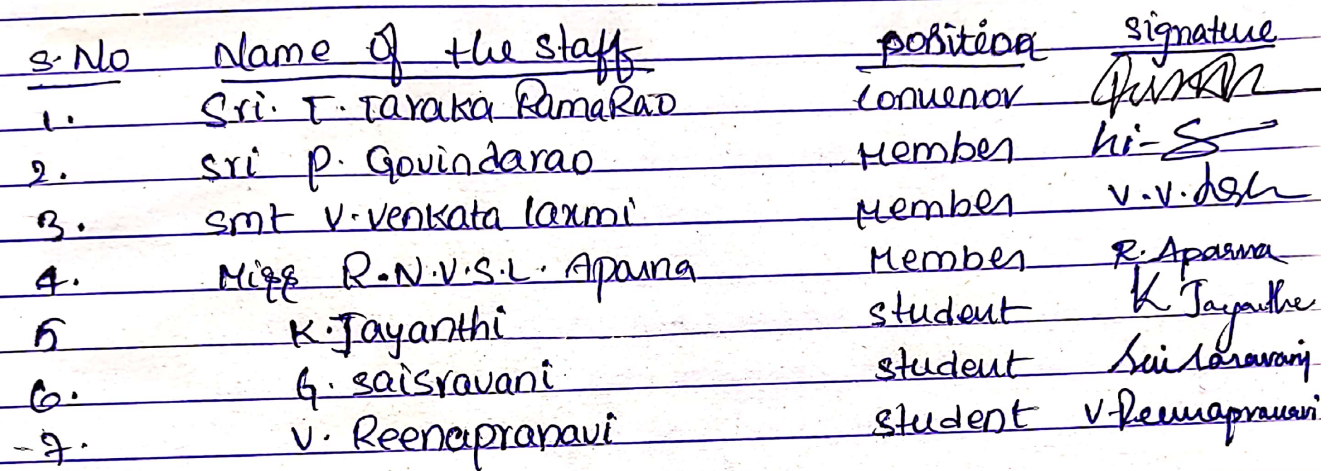 S.No Name of the staff position signature
1. Sri. T. Taraka RamaRao convenor
2. sri P. Govindarao Member
3. smt V. Venkata laxmi Member V.V.
4. Miss R.N.V.S.L. Aparna Member R. Aparna
5 K. Jayanthi student K Jayanthe
6. G. saisravani student Sai Sravani
7. V. Reenapranavi student V Reenapranavi